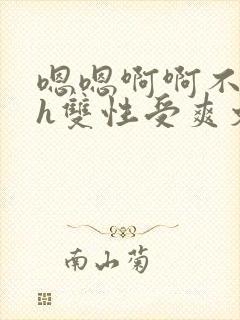 嗯嗯啊啊不
h雙性受爽
南山菊